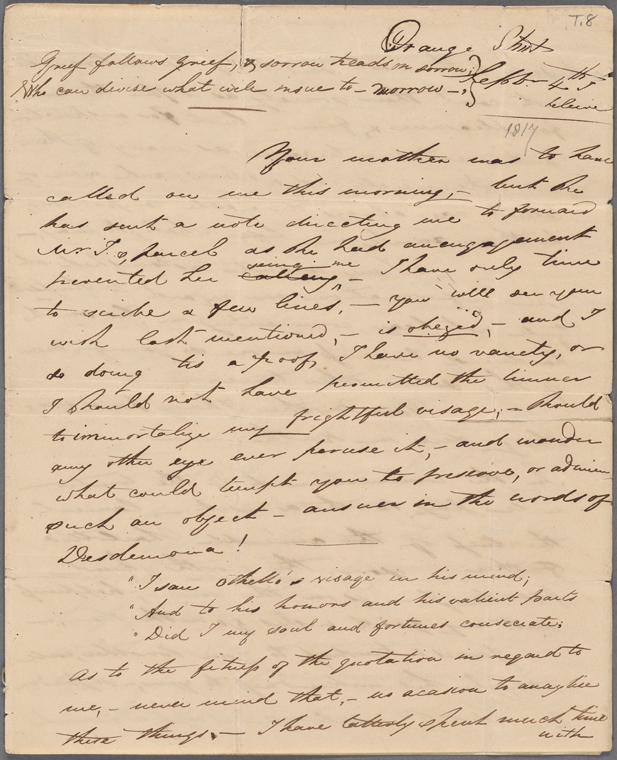 T.8
Orange Street
Grief follows grief, & sorrow treads on sorrow;
Who can divise what will insue to-morrow -
Sept - 4th
1817
Your mother was to have
called on me this morning, - but she
has sent a note directing me to forward
Mr T.s, parcel as she had an engagement
prevented her calling, seeing me - I have only time
to scribe a few lines, - you will see your
wish last mentioned, - is obeyed, - and I
so doing tis a proof, I have no vanety, or
I should not have permitted the limner
to immortalize my frightful visage; - should
any other eye ever peruse it, - and wonder
what could tempt you to preserve, or admire
such an object - answer in the words of
Desdemona!
"I saw Othello's visage in his mind;
"And to his honors and his valient parts
"Did I my soul and fortunes consecrate;
As to the fitness of the quotation in regard to
me, - never mind that, - no acasion to analize
these things - I have latterly spent much time
with